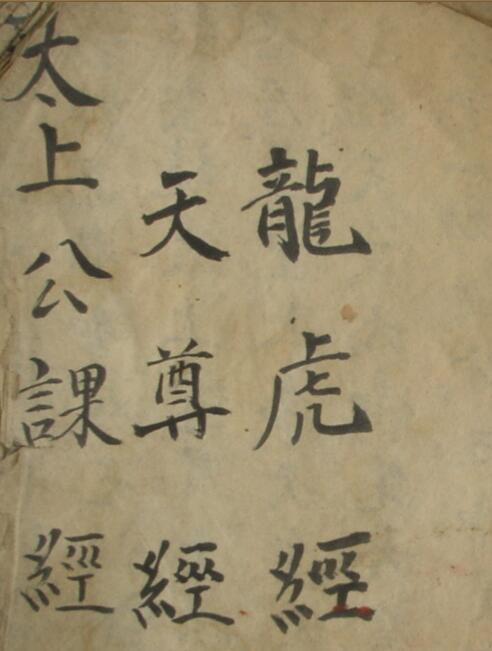 龍虎經
天尊經
太上公課經